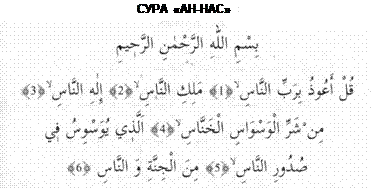 СУРА «АН-НАС»
بِسْمِ اللهِ الرَّحْمٰنِ الرَّحِيمِ
قُلْ أَعُوذُ بِرَبِّ النَّاسِۙ ﴿1﴾ مَلِكِ النَّاسِۙ ﴿2﴾ إِلٰهِ النَّاسِۙ ﴿3﴾
مِنْ شَرِّ الْوَسْوَاسِ الْخَنَّاسِۙ ﴿4﴾ اَلَّذِي يُوَسْوِسُ فِي
صُدُورِ النَّاسِۙ ﴿5﴾ مِنَ الْجِنَّةِ وَ النَّاسِ ﴿6﴾